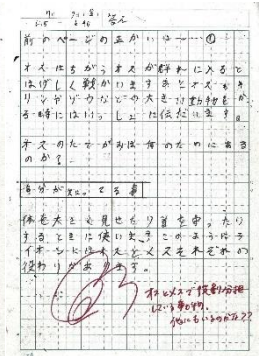 答え
前のページの正かいは〜①
オスはちがうオスが群れに入ると
はげしく戦かいますまたメスもキ
リンやゾウなどの大きな動物をか
る時にはいっしょに伝だいます。
オスのたてがみは何のためにある
のか？
自分が知ってる事
体を大きく見せたり首を守ったり
するときに使います。このようにラ
イオンにはオスとメスそれぞれの
役わりがあります。
オスとメスで役割分担
している動物、
他にもいるのかな？？